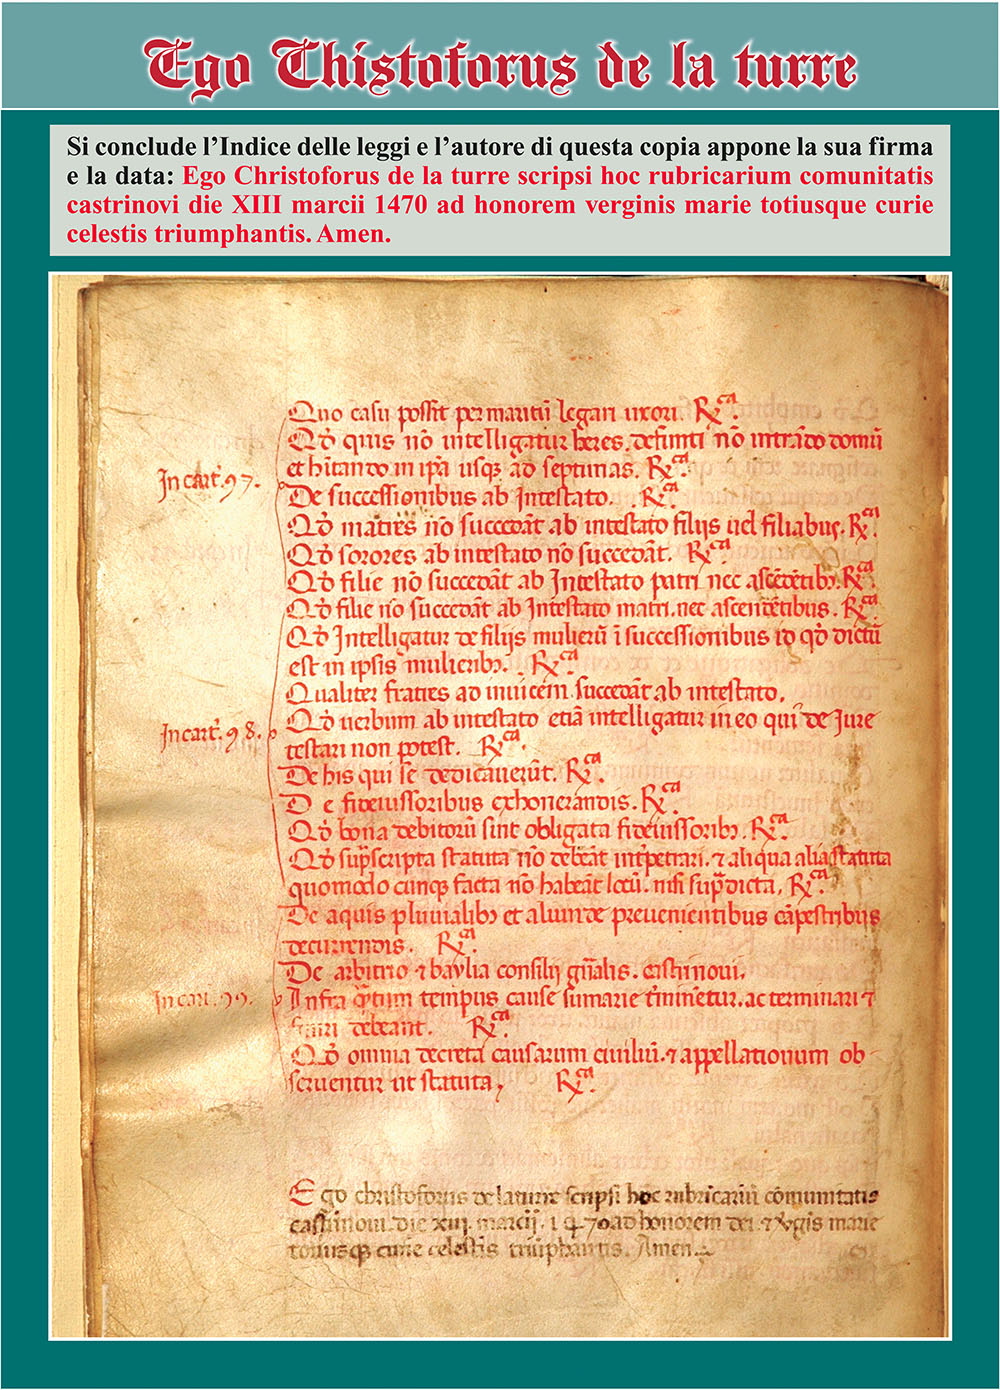 Ego Thistoforus de la turre
Si conclude l’Indice delle leggi e l’autore di questa copia appone la sua firma
e la data: Ego Christoforus de la turre scripsi hoc rubricarium comunitatis
castrinovi die XIII marcii 1470 ad honorem verginis marie totiusque curie
celestis triumphantis. Amen.
Quo casu possit per maritū legari uxori. Rca.
Qđ quis nō intelligatur heres. defunti nō intrādo domū
et hītando in ipā usq; ad septimas. Rca.
In cart. 97.
De successionibus ab Intestato. Rca.
Qđ matres nō succedāt ab intestato filijs uel filiabus. Rca.
Qđ sorores ab intestato nō succedāt. Rca.
Qđ filie nō succedāt ab Intestato patri nec ascēdētib3. Rca.
Qđ filie nō succedāt ab Intestato matri. nec ascendētibus. Rca.
Qđ Intelligatur de filijs mulierū ī successionibus id qđ dictū
est in ipsis mulierib3. Rca.
Qualiter fratres ad inuicem succedāt ab intestato.
In cart. 98.
Qđ uerbum ab intestato etiā intelligatur in eo qui de Iure
testari non potest. Rca.
De his qui se dedicauerūt. Rca.
De fideiussoribus exhonerandis. Rca.
Qđ bona debitorū sint obligata fideiussorib3. Rca.
Qđ supscripta statuta nō debeāt intpetrari. ⁊ aliqua alia statuta
quomodo cunq; facta nō habeāt locū. nisi supdicta, Rca.
De aquis pluuialib3 et aliunde preuenientibus cāpestribus
decurrendis. Rca.
De arbitrio ⁊ baylia consilij gnālis. castrinoui.
In cart. 99.
Infra tempus cause sumarie tminentur. ac terminari ⁊
finiri debeant. Rca.
Qđ omnia decreta causarum ciuiliū. ⁊ appellationum ob-
seruentur ut statuta, Rca.
Ego christoforus de la turre scripsi hoc rubricariū cōmunitatis
castrinoui die xiij. marcij. 1470 ad honorem dei. ⁊ vgis marie
totiusq; curie celestis triūphantis. Amen.